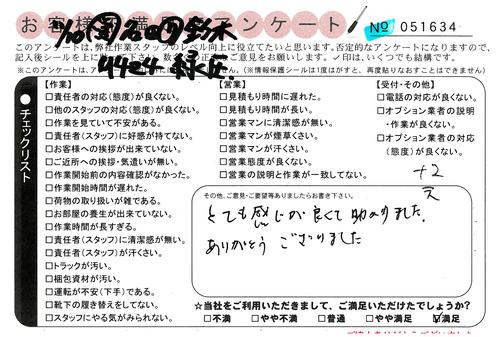 お客様満足アンケート
№ 051634
このアンケートは、弊社作業スタッフのレベル向上に役立てたいと思います。否定的なアンケートになりますので、
記入後シールを上に お願い致します。✓印は、いくつでも結構です。
(※情報保護シールは1度はがすと、再度貼りなおすことはできません)
チェックリスト
【作業】
□責任者の対応(態度)が良くない。
□他のスタッフの対応(態度)が良くない。
□作業を見ていて不安がある。
□責任者(スタッフ)に好感が持てない。
□お客様への挨拶が出来ていない。
□ご近所への挨拶・気遣いが無い。
□作業開始前の内容確認がなかった。
□作業開始時間が遅れた。
□荷物の取り扱いが雑である。
□お部屋の養生が出来ていない。
□作業時間が長すぎる。
□責任者(スタッフ)に清潔感が無い。
□責任者(スタッフ)が汗くさい。
□トラックが汚い。
□梱包資材が汚い。
□運転が不安(下手)である。
□靴下の履き替えをしてない。
□スタッフにやる気がみられない。
【営業】
□見積もり時間に遅れた。
□見積もり時間が長い。
□営業マンに清潔感が無い。
□営業マンが煙草くさい。
□営業マンが汗くさい。
□営業態度が良くない。
□営業の説明と作業が一致してない。
【受付・その他】
□電話の対応が良くない。
□オプション業者の説明
・作業が良くない。
□オプション業者の対応
(態度)が良くない。
+2
その他、ご意見・ご要望等ありましたらお書き下さい。
とても感じが良くて助かりました。
ありがとう ございました
☆当社をご利用いただきまして、ご満足いただけたでしょうか?
□不満 □やや不満 □普通 □やや満足 ☑満足